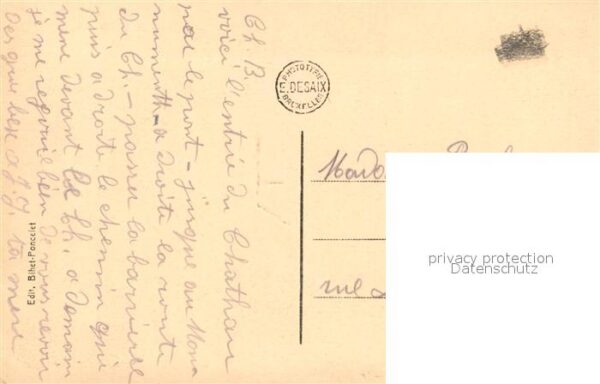 Ch. B.
voici l'entrée du Chathau
par le pont - jusque au Monu
numenth - a droite la route
du Ch. - passer la barrière
puis a droite le chemin qui
mene devant le Ch. a demain
je me rejouie bien de vous revoir
Des gros bese a J. J. ta mere
Edit. Bihet-Poncelet
PHOTOTYPIE
E. DESAIX
BRUXELLES
Mada
rue
privacy protection
Datenschutz